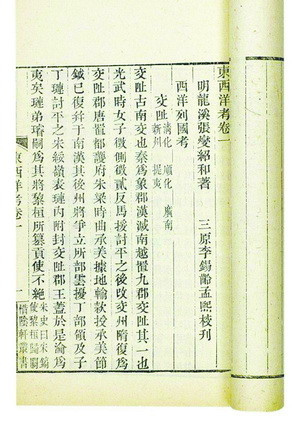 東西洋考卷一
明龍溪張燮紹和著　三原李錫齡孟熙校刊
西洋列國考
交阯 清化 順化 廣南 新州 提夷
交阯古南交也秦爲象郡漢滅南越置九郡交阯其一也
光武時女子徵側徵貳反馬援討平之後改交州隋復爲
交阯郡唐置都護府朱梁時曲承美據地輸款授承美節
鉞已復并于南漢其後州將爭立所部雲擾丁部領及子
丁璉討平之宋綏嶺表璉內附封交阯郡王蓋於是淪爲
夷矣璉弟璿嗣爲其將黎桓所纂貢使不絕
東西洋考卷一
一
惜陰軒叢書